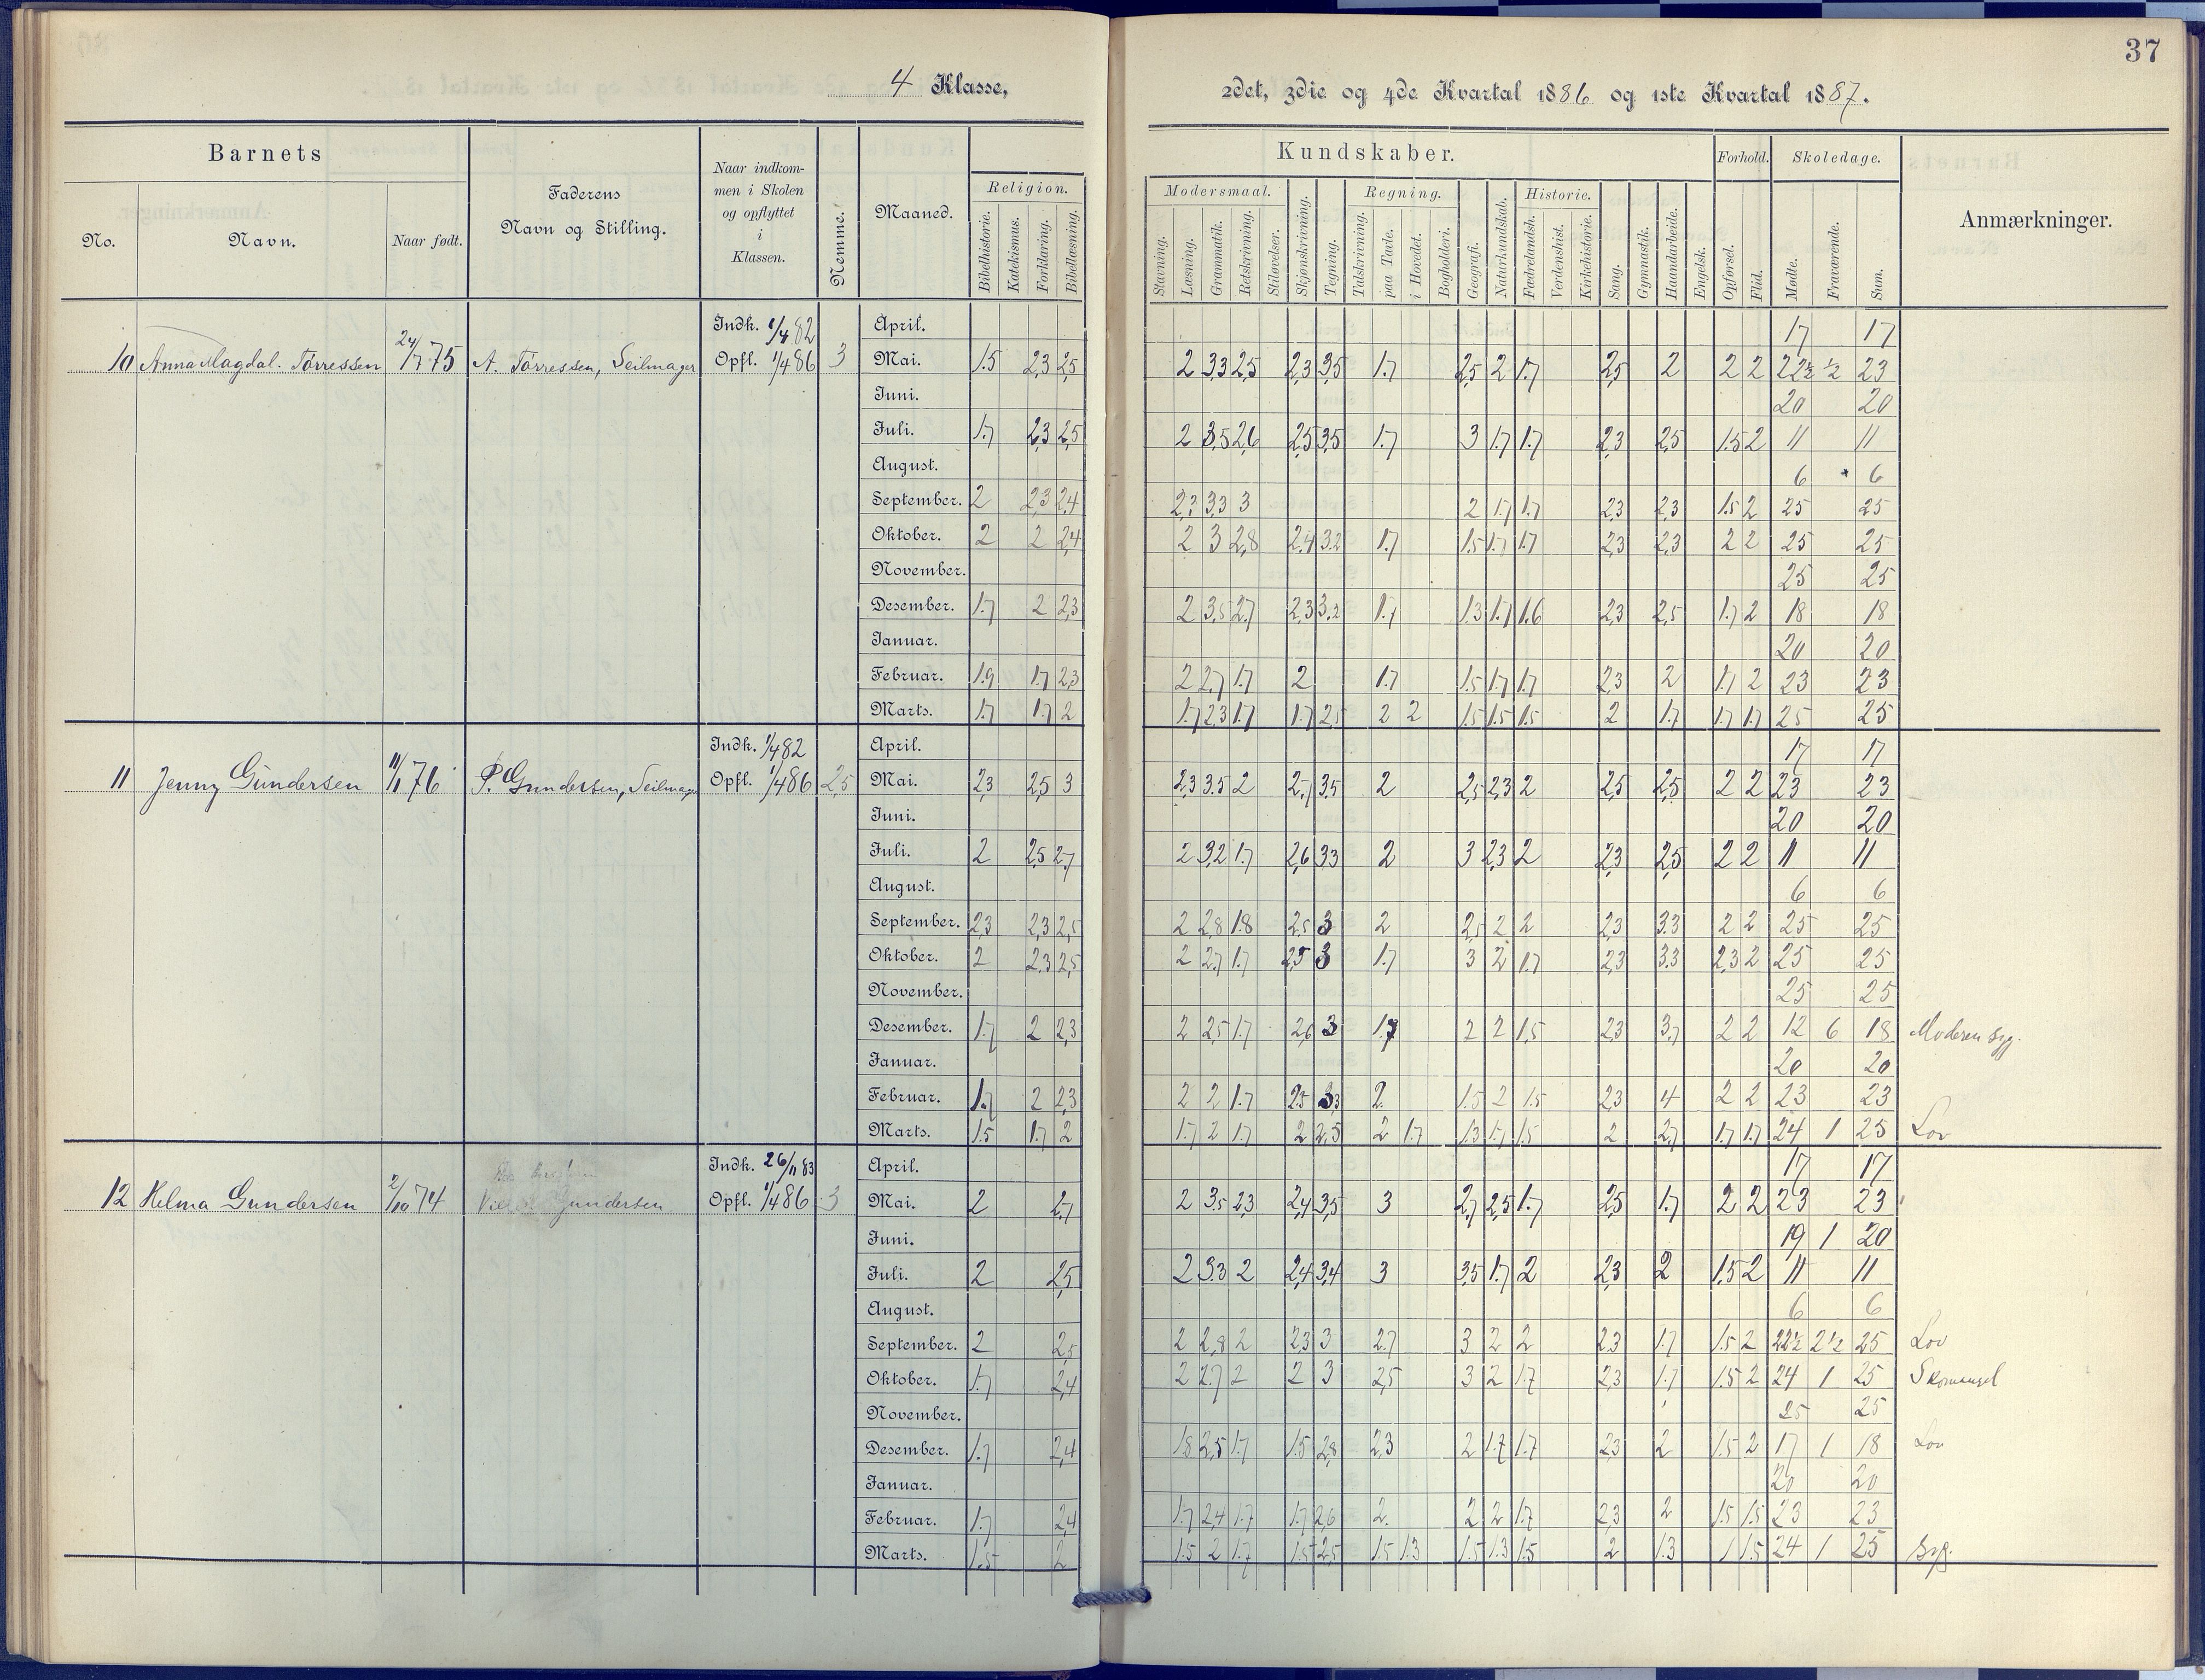 37
4 Klasse, 2det, 3die og 4de Kvartal 1886 og 1ste Kvartal 1887.
Barnets
No. Navn. Naar født.
Faderens Navn og Stilling.
Naar indkommen i Skolen og opflyttet i Klassen.
Nemme.
Maaned.
Kundskaber.
Religion. Bibelhistorie. Katekismus. Forklaring. Bibellæsning.
Modersmaal. Stavning. Læsning. Grammatik. Retskrivning. Stiløvelser.
Skjønskrivning. Tegning.
Regning. Talskrivning. paa Tavle. i Hovedet. Bogholderi.
Geografi. Naturkundskab.
Historie. Fædrelandsh. Verdenshist. Kirkehistorie.
Sang. Gymnastik. Haandarbeide. Engelsk.
Forhold. Opførsel. Flid.
Skoledage. Mødte. Fraværende. Sum.
Anmærkninger.
10 Anna Magdal. Tørressen 24/7 75 A. Tørressen, Seilmager Indk. 1/4 82 Opfl. 1/4 86 3
April. 17 17
Mai. 1.5 2,3 2,5 2 3,3 2,5 2,3 3,5 1.7 2,5 2 1.7 2,5 2 2 2 22½ ½ 23
Juni. 20 20
Juli. 1.7 2,3 2,5 2 3,5 2,6 2,5 3,5 1.7 3 1.7 1.7 2,3 2,5 1.5 2 11 11
August. 6 6
September. 2 2,3 2,4 2,3 3,3 3 2 1.7 1.7 2,3 2,3 1.5 2 25 25
Oktober. 2 2 2,4 2 3 2,8 2,4 3.2 1.7 1.5 1.7 1.7 2,3 2,3 2 2 25 25
November. 25 25
Desember. 1.7 2 2,3 2 3,5 2,7 2,3 3,2 1.7 1.3 1.7 1.6 2,3 2,5 1.7 2 18 18
Januar. 20 20
Februar. 1.9 1.7 2,3 2 2,7 1.7 2 1.7 1.5 1.7 1.7 2,3 2 1.7 2 23 23
Marts. 1.7 1.7 2 1.7 2,3 1.7 1.7 2,5 2 2 1.5 1.5 1.5 2 1.7 1.7 1.7 25 25
11 Jenny Gundersen 11/1 76 P. Gundersen, Seilmager Indk. 1/4 82 Opfl. 1/4 86 2,5
April. 17 17
Mai. 2,3 2,5 3 2,3 3.5 2 2,7 3,5 2 2,5 2,3 2 2,5 2,5 2 2 23 23
Juni. 20 20
Juli. 2 2,5 2,7 2 3,2 1.7 2,6 3,3 2 3 2,3 2 2,3 2,5 2 2 11 11
August. 6 6
September. 2,3 2,3 2,5 2 2,8 1.8 2,5 3 2 2,5 2 2 2,3 3.3 2 2 25 25
Oktober. 2 2,3 2,5 2 2,7 1.7 2,5 3 1.7 3 2 1.7 2,3 3.3 2,3 2 25 25
November. 25 25
Desember. 1.7 2 2,3 2 2,5 1.7 2,6 3 1.7 2 2 1,5 2,3 3,7 2 2 12 6 18 Moderen syg.
Januar. 20 20
Februar. 1.7 2 2,3 2 2 1.7 2,5 3,3 2. 1.5 2 1.5 2,3 4 2 2 23 23
Marts. 1.5 1.7 2 1.7 2 1.7 2 2,5 2 1.7 1.3 1.7 1.5 2 2,7 1.7 1.7 24 1 25 Lov
12 Helma Gundersen 2/10 74 Gundersen Indk. 26/11 83 Opfl. 1/4 86 3
April. 17 17
Mai. 2 2,7 2 3,5 2,3 2,4 3,5 3 2,7 2,5 1.7 2,5 1.7 2 2 23 23
Juni. 19 1 20
Juli. 2 2,5 2 3.3 2 2,4 3,4 3 3,5 1.7 2 2,3 2 1.5 2 11 11
August. 6 6
September. 2 2,5 2 2,8 2 2,3 3 2.7 3 2 2 2,3 1.7 1.5 2 22½ 2½ 25 Lov
Oktober. 1.7 2,4 2 2.7 2 2 3 2,5 3 2 1.7 2,3 1.7 1.5 2 24 1 25 Skomangel
November. 25 25
Desember. 1.7 2,4 1.8 2,5 1.7 1.5 2,8 2,3 2 1.7 1.7 2,3 2 1.5 2 17 1 18 Lov
Januar. 20 20
Februar. 1.7 2,4 1.7 2,4 1.7 1.7 2,6 2. 2 2 1.7 2,3 2 1.5 1.5 23 23
Marts. 1.5 2 1.5 2 1.7 1.5 2,5 1.5 1.3 1.5 1.3 1.5 2 1.3 1 1.5 24 1 25 Syg.